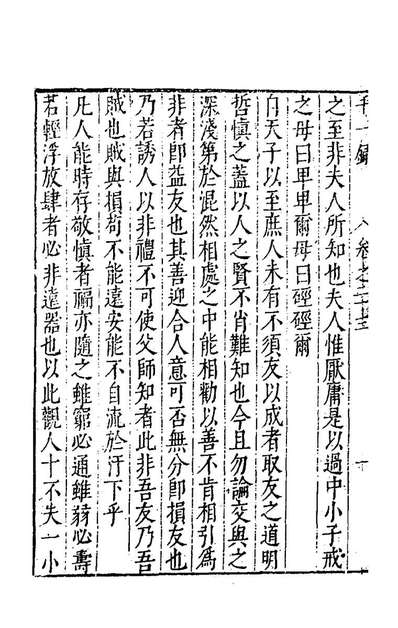 千一錄 卷之二十三 十
之至非夫人所知也夫人惟厭庸是以過中小子戒
之毋曰卑卑爾毋曰硜硜爾
自天子以至庶人未有不須友以成者取友之道明
哲慎之蓋以人之賢不肖難知也今且勿論交與之
深淺第於混然相處之中能相勸以善不肯相引爲
非者即益友也其善迎合人意可否無分即損友也
乃若誘人以非禮不可使父師知者此非吾友乃吾
賊也賊與損苟不能遠安能不自流於汙下乎
凡人能時存敬慎者福亦隨之雖窮必通雖弱必壽
若輕浮放肆者必非遠器也以此觀人十不失一小